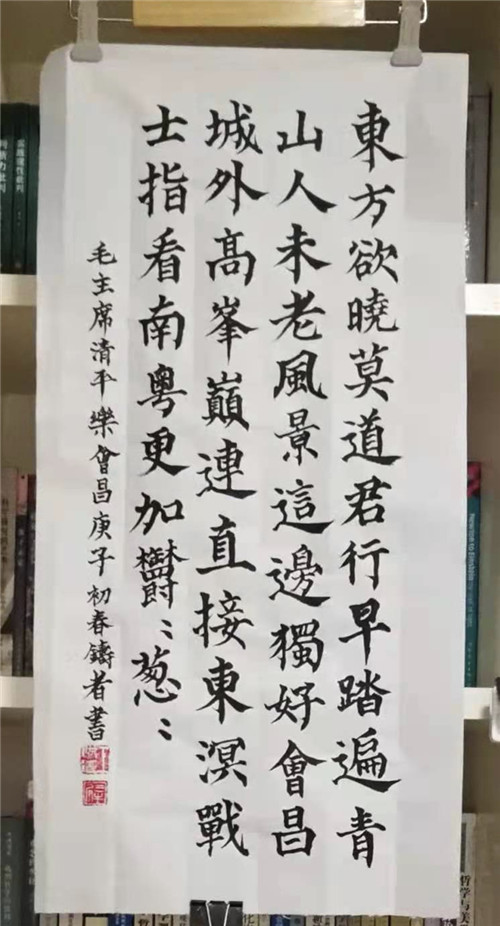 東方欲曉莫道君行早踏遍青
山人未老風景這邊獨好會昌
城外高峯巔連直接東溟戰
士指看南粤更加欝〻葱〻
毛主席清平樂會昌庚子初春鑄者書